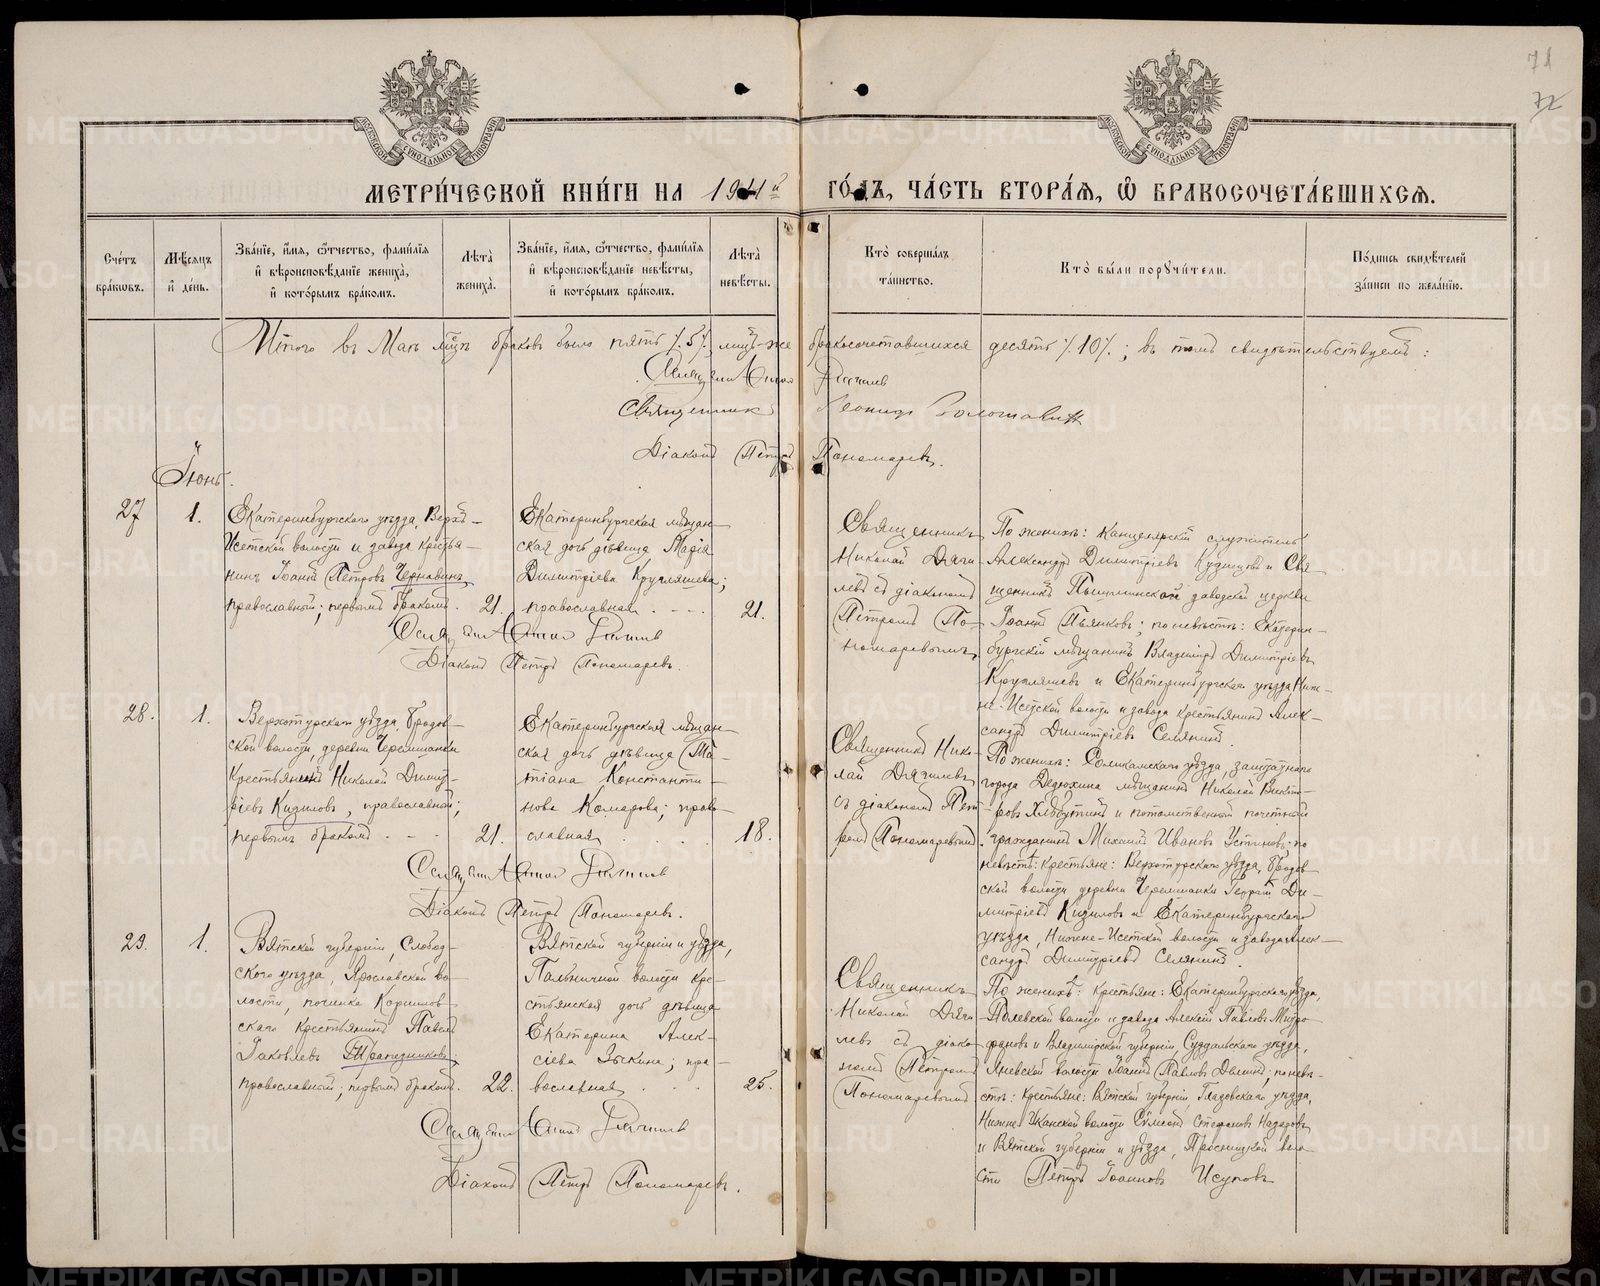 71
72
МЕТРИ́ЧЕСКОЙ КНИ́ГИ НА 1911й ГО́ДЪ, ЧА́СТЬ ВТОРА́Я, Ѡ БРАКОСОЧЕТА́ВШИХСѦ.
Сче́тъ бра́кѡвъ.
Мѣ́сяцъ и҆ де́нь.
Зва́нїе, и҆́мя, ѻ҆́тчество, фамѝлїя и҆ вѣроисповѣ́данїе жениха̀, и҆ кото́рымъ бра́комъ.
Лѣ́та жениха̀.
Зва́нїе, и҆́мя, ѻ҆́тчество, фамѝлїя и҆ вѣроисповѣ́данїе невѣ́сты, и҆ кото́рымъ бра́комъ.
Лѣ́та невѣ́сты.
Кто̀ соверша́лъ та́инство.
Кто̀ бы́ли порꙋчи́тели.
По́дпись свидѣ́телей за́писи по жела́нїю.
Итого въ Маѣ м-цѣ браковъ было пять /.5/., лицъ-же бракосочетавшихся десять /.10/.; въ томъ свидѣтельствуемъ:
Священникъ
Діаконъ Петръ Пономаревъ.
Іюнь.
27
1.
Екатеринбургскаго уѣзда, Верхъ-
Исетской волости и завода крестья-
нинъ Іоаннъ Петровъ Чернавинъ,
православный; первымъ бракомъ.
21.
Екатеринбургская мѣщан-
ская дочь дѣвица Марія
Димитріева Кругляшева;
православная
21.
Діаконъ Петръ Пономаревъ.
Священникъ
Николай Дяги-
левъ съ діакономъ
Петромъ По-
номаревымъ.
По женихѣ: Канцелярскій служитель
Александръ Димитріевъ Кудинцовъ и Свя-
щенникъ Пышминской заводской церкви
Іоаннъ Пьянковъ; по невѣстѣ: Екатерин-
бургскій мѣщанинъ Владиміръ Димитріевъ
Кругляшевъ и Екатеринбургскаго уѣзда, Ниж-
не-Исетской волости и завода крестьянинъ Алек-
сандръ Димитріевъ Селянинъ.
28.
1.
Верхотурскаго уѣзда, Бродов-
ской волости, деревни Черемшанки
Крестьянинъ Николай Димит-
ріевъ Кидиловъ, православный;
первымъ бракомъ
21.
Екатеринбургская мѣщан-
ская дочь дѣвица Та-
тіана Константи-
нова Комарова; право-
славная
18.
Діаконъ Петръ Пономаревъ.
Священникъ Нико-
лай Дягилевъ
съ діакономъ Пет-
ромъ Пономаревымъ
По женихѣ: Соликамскаго уѣзда, заштатнаго
города Дедюхина мѣщанинъ Николай Викто-
ровъ Хлѣбутинъ и потомственный почетный
гражданинъ Михаилъ Ивановъ Устиновъ; по
невѣстѣ: Крестьяне: Верхотурскаго уѣзда, Бродов-
ской волости деревни Черемшанки Георгій Ди-
митріевъ Кидиловъ и Екатеринбургскаго
уѣзда, Нижне-Исетской волости и завода Алек-
сандръ Димитріевъ Селянинъ.
29.
1.
Вятской губерніи, Слобод-
ского уѣзда, Ярославской во-
лости, починка Корнилов-
скаго Крестьянинъ Павелъ
Іаковлевъ Трапезниковъ,
православный; первымъ бракомъ.
22.
Вятской губерніи и уѣзда,
Пальничной волости кре-
стьянская дочь дѣвица
Екатерина Алек-
сіева Зыкина; пра-
вославная
25.
Діаконъ Петръ Пономаревъ.
Священникъ
Николай Дяги-
левъ съ діако-
номъ Петромъ
Пономаревымъ
По женихѣ: крестьяне: Екатеринбургскаго уѣзда,
Полевской волости и завода Алексій Павловъ Митро-
фановъ и Владимірской губерніи, Суздальскаго уѣзда,
Яневской волости Іоаннъ Павловъ Деминъ; по невѣ-
стѣ: крестьяне: Вятской губерніи Глазовскаго уѣзда,
Нижне-Уканской волости Сѵмеонъ Стефановъ
и Вятской губерніи и уѣзда, Просницкой воло-
сти Петръ Іоанновъ Исуповъ